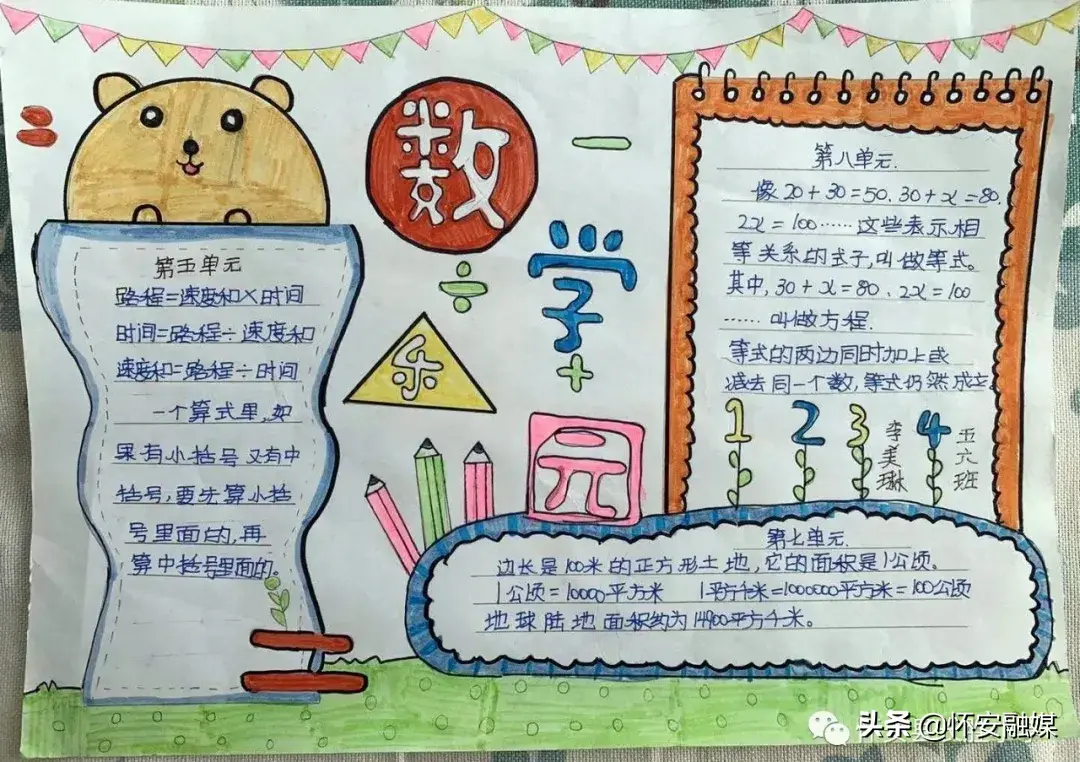 数
学
乐
元
第五单元
路程=速度和×时间
时间=路程÷速度和
速度和=路程÷时间
一个算式里,如
果有小括号又有中
括号,要先算小括
号里面的,再
算中括号里面的。
第八单元.
像20+30=50.30+x=80.
2x=100……这些表示相
等关系的式子,叫做等式。
其中,30+x=80、2x=100
……叫做方程.
等式的两边同时加上或
减去同一个数,等式仍然成立.
1 2 3 4
李美琳
五六班
第七单元.
边长是100米的正方形土地,它的面积是1公顷。
1公顷=10000平方米 1平方千米=1000000平方米=100公顷
地球陆地面积约为14900平方千米。
头条@怀安融媒